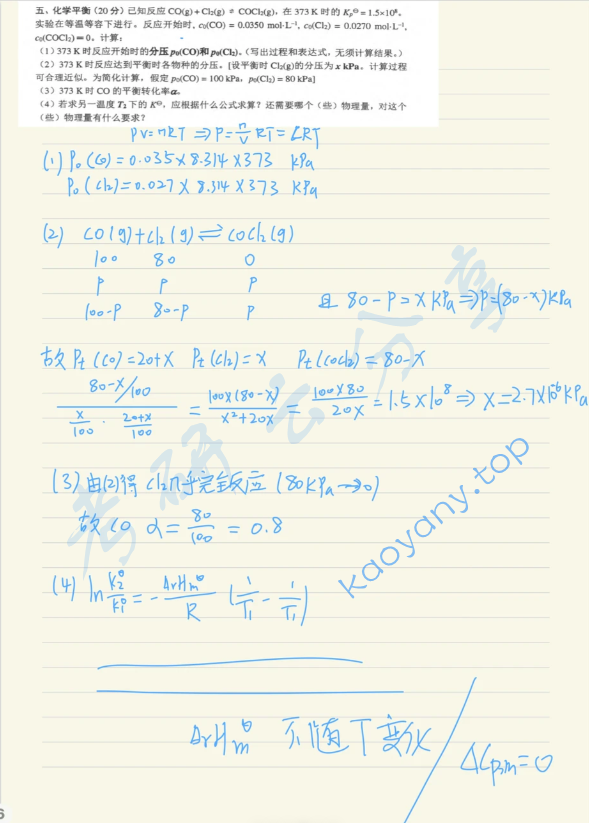 五、化学平衡（20 分）已知反应 CO(g) + Cl₂(g) ⇌ COCl₂(g)，在 373 K 时的 Kₚ^Θ = 1.5×10⁸。
实验在等温等容下进行。反应开始时，c₀(CO) = 0.0350 mol·L⁻¹，c₀(Cl₂) = 0.0270 mol·L⁻¹，
c₀(COCl₂) = 0。计算：
（1）373 K 时反应开始时的分压 p₀(CO)和 p₀(Cl₂)。（写出过程和表达式，无须计算结果。）
（2）373 K 时反应达到平衡时各物种的分压。[设平衡时 Cl₂(g)的分压为 x kPa。计算过程
可合理近似。为简化计算，假定 p₀(CO) = 100 kPa，p₀(Cl₂) = 80 kPa]
（3）373 K 时 CO 的平衡转化率α。
（4）若求另一温度 T₂ 下的 K^Θ，应根据什么公式求算？还需要哪个（些）物理量，对这个
（些）物理量有什么要求？
PV=nRT ⇒ P=n/V RT=CRT
(1) P₀(CO)=0.035×8.314×373 kPa
P₀(Cl₂)=0.027×8.314×373 kPa
(2) CO(g)+Cl₂(g)⇌COCl₂(g)
100 80 0
P P P
100-P 80-P P 且 80-P=x kPa ⇒P=(80-x)kPa
故 Pt(CO)=20+x Pt(Cl₂)=x Pt(COCl₂)=80-x
(80-x/100)/(x/100 · 20+x/100) = 100×(80-x)/(x²+20x) = 100×80/20x = 1.5×10⁸ ⇒ x=2.7×10⁻⁶kPa
(3) 由(2)得 Cl₂几乎完全反应 (80kPa→0)
故 CO α= 80/100 = 0.8
(4) ln K₂^θ/K₁^θ = - ΔrHm^θ/R (1/T₁ - 1/T₁)
ΔrHm^θ 不随T变化 / ΔCp,m=0
考研云分享
kaoyany.top
6